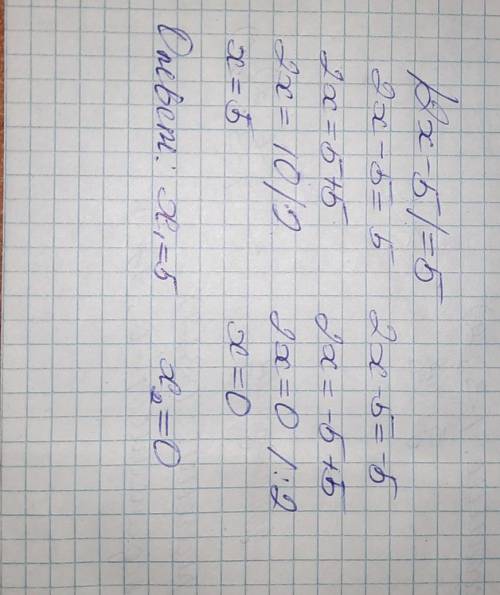 |2x-5|=5
2x-5=5 2x-5=-5
2x=5+5 2x=-5+5
2x=10/:2 2x=0 /:2
x=5 x=0
Ответ: x₁=5 x₂=0